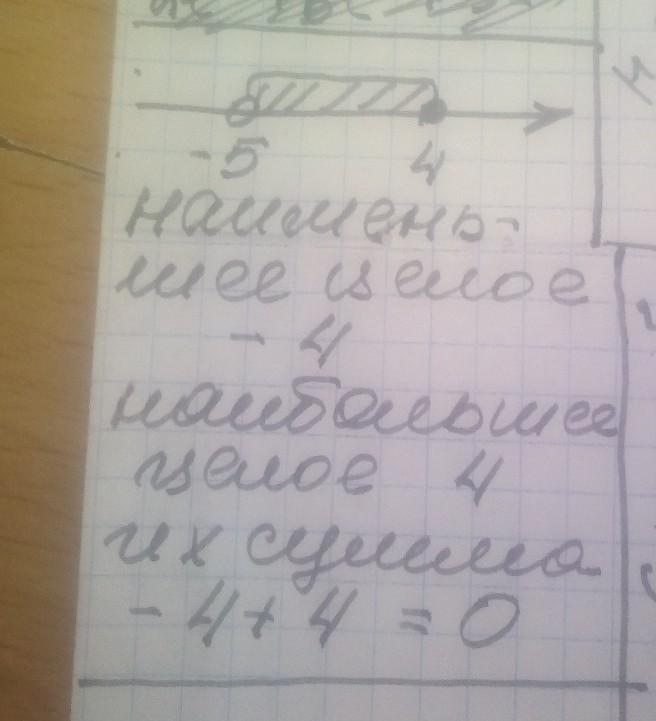 -5 4
наимень-
шее целое
- 4
наибольшее
целое 4
их сумма
- 4 + 4 = 0